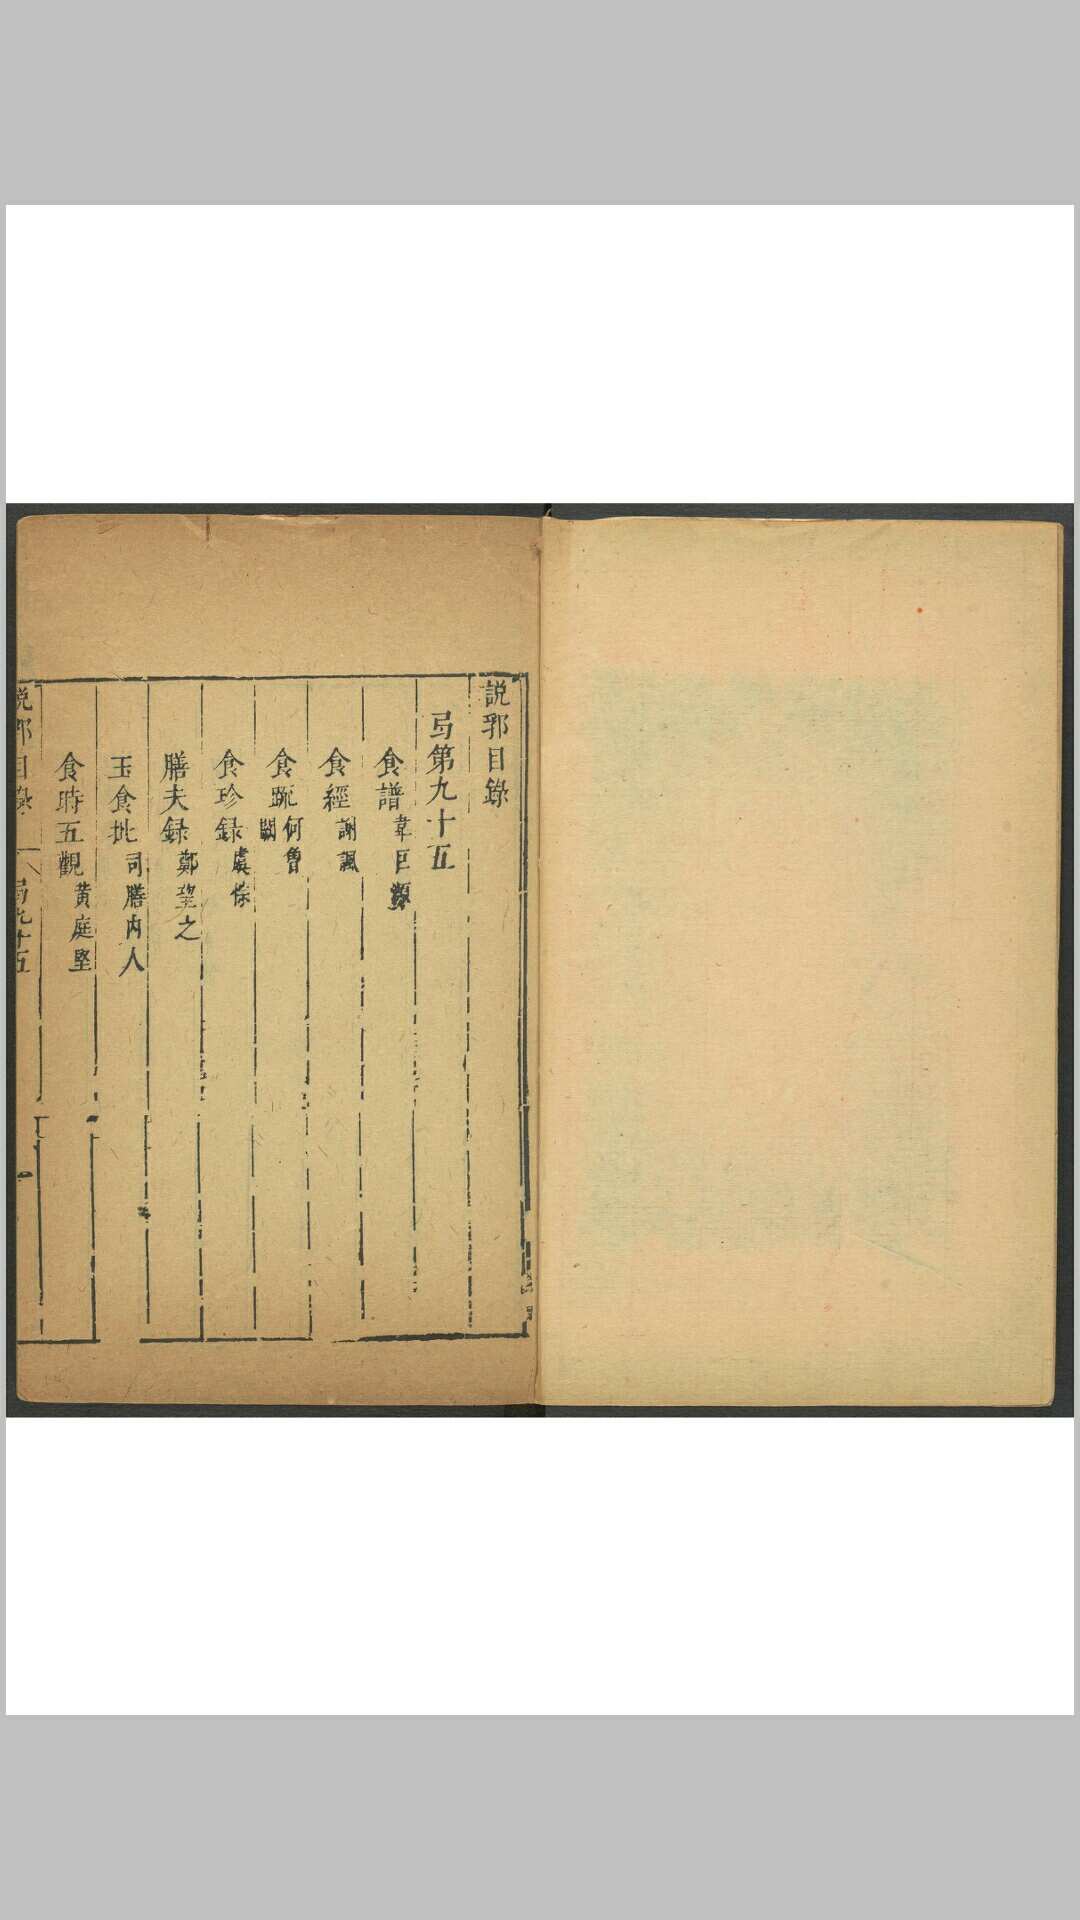 説郛目錄
弓第九十五
食譜 韋巨源
食經 謝諷
食疏 何曾 闕
食珍録 虞悰
膳夫録 鄭望之
玉食批 司膳内人
食時五觀 黄庭堅
説郛目錄 弓九十五 一